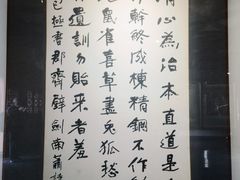 清心為治本直道是
幹終成棟精鋼不作
鼠雀喜草盡兔狐愁
遺訓勿貽來者羞
包拯書郡齋壁劍南蕭